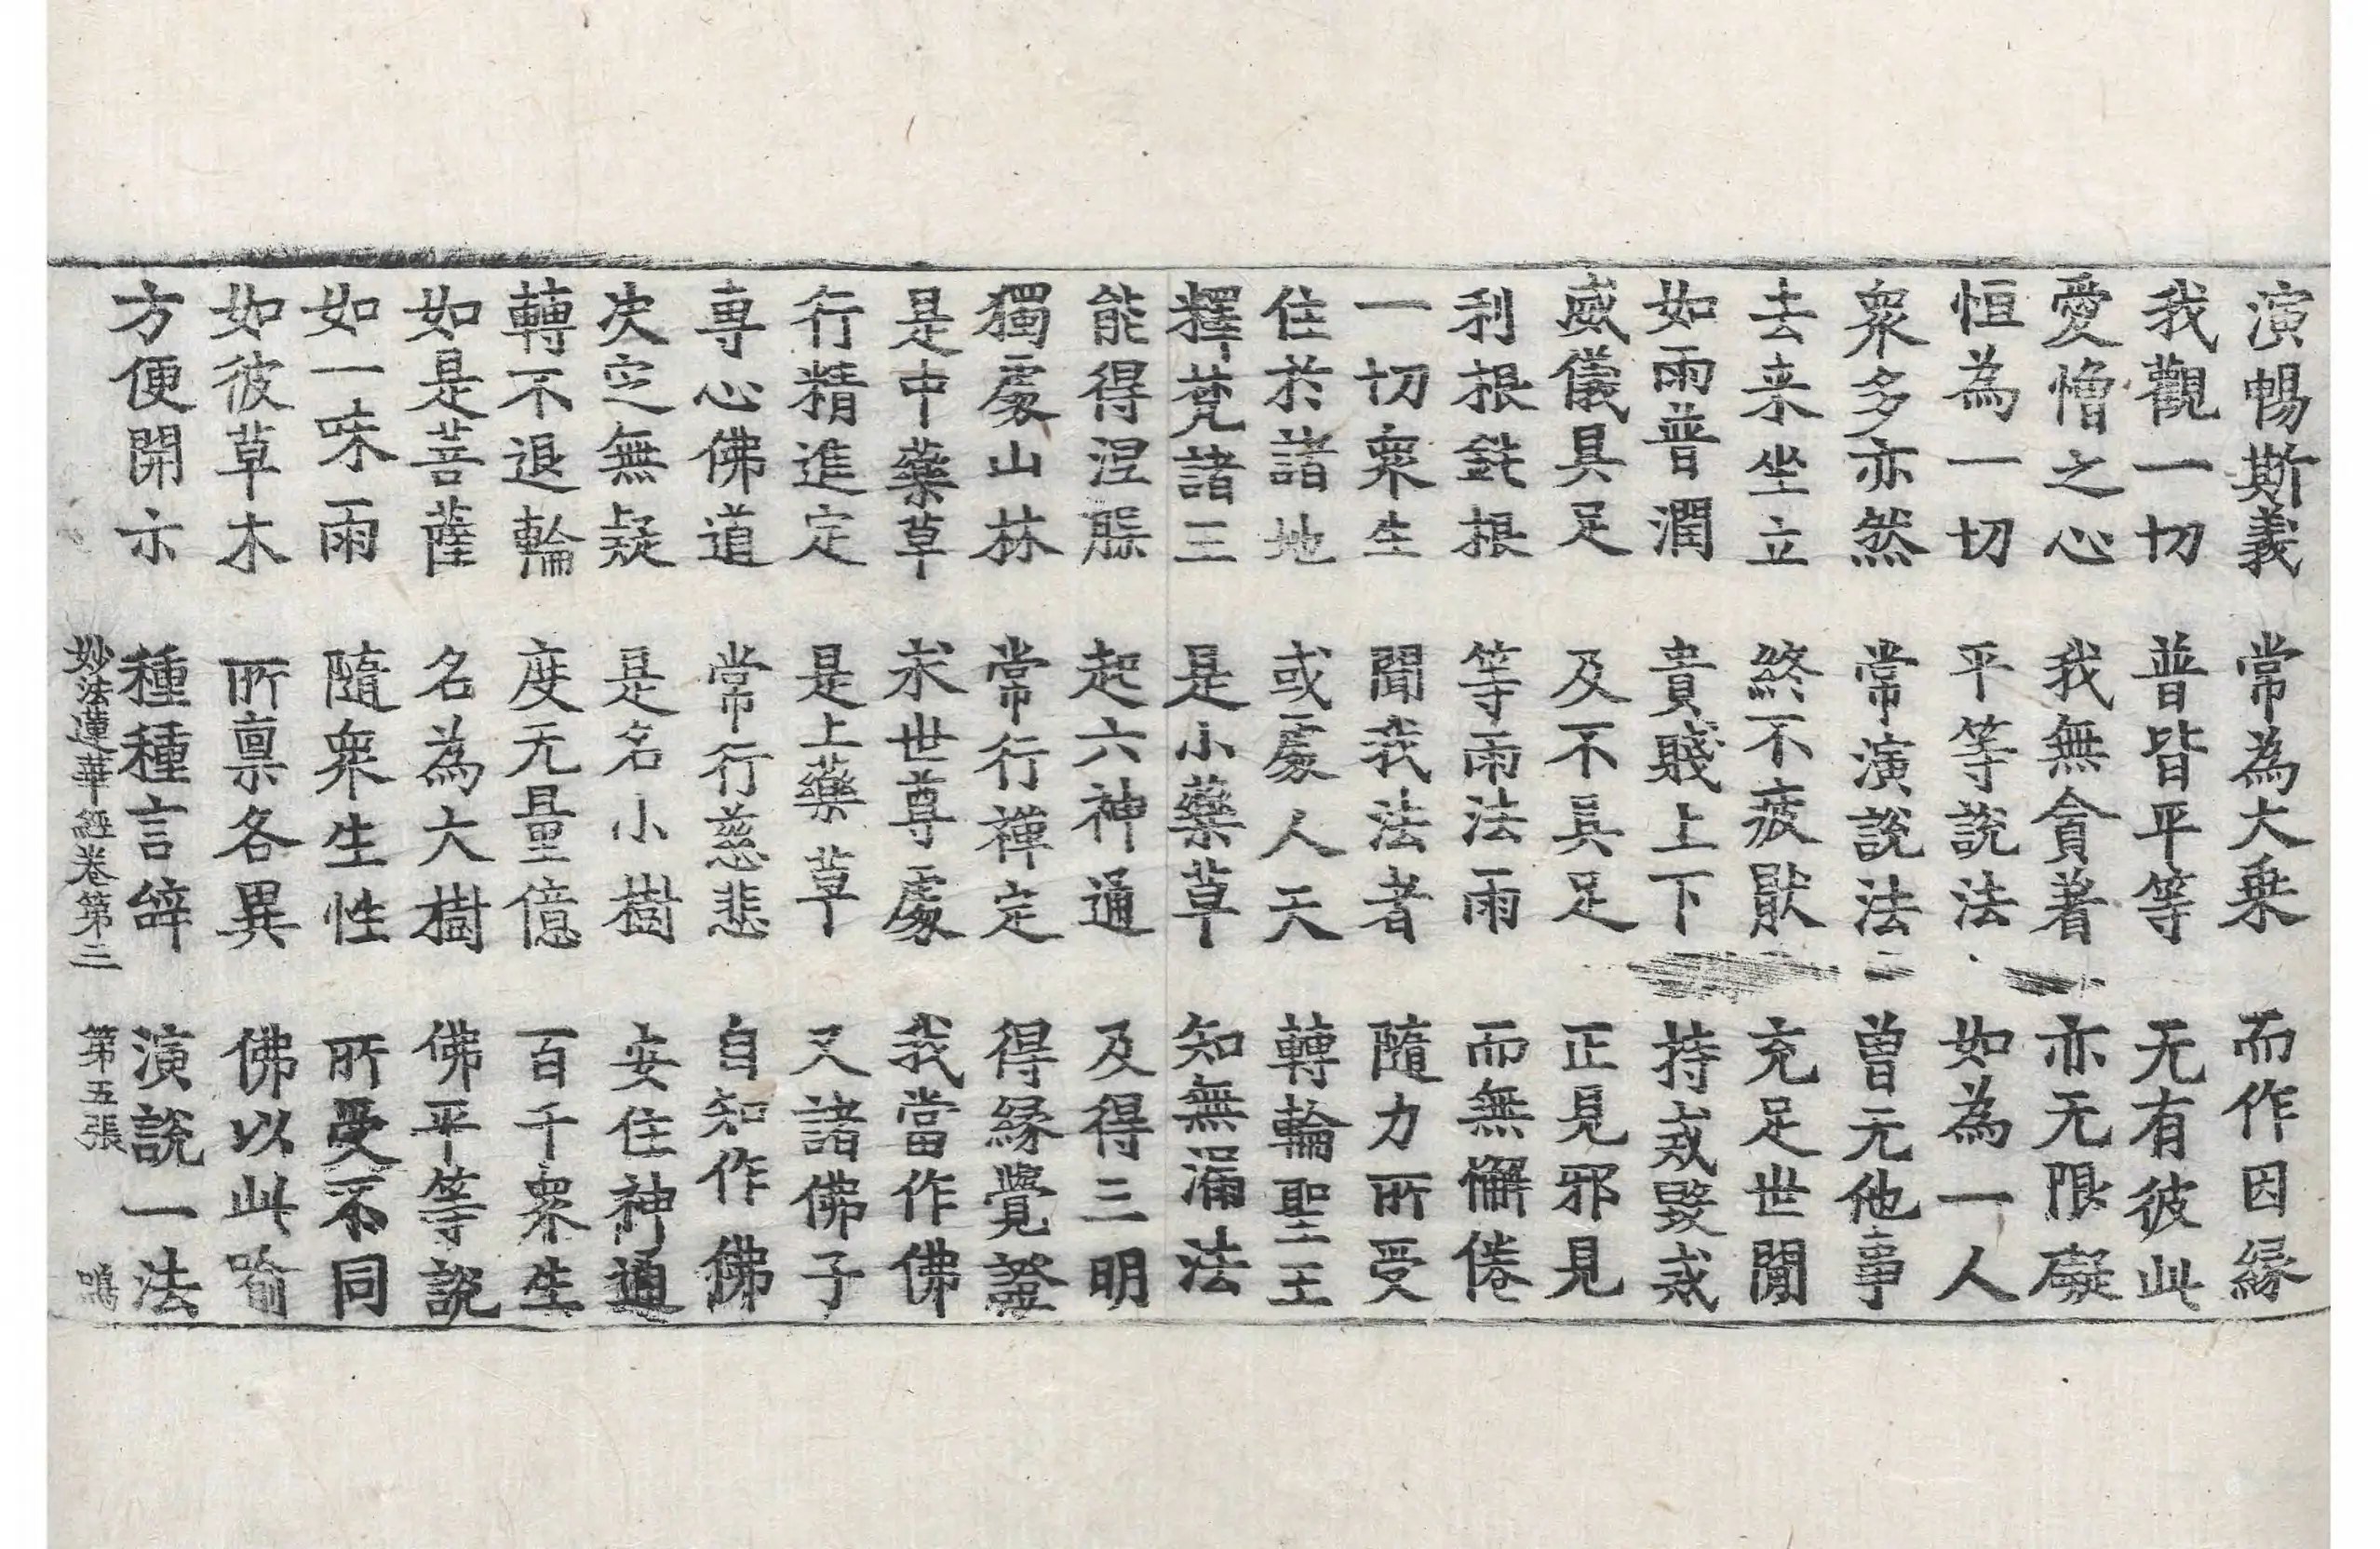 演暢斯義 常為大乗 而作因縁
我觀一切 普皆平等 无有彼此
愛憎之心 我無貪著 亦无限礙
恒為一切 平等説法 如為一人
衆多亦然 常演説法 曽无他事
去来坐立 終不疲猒 充足世間
如雨普潤 貴賤上下 持戒毀戒
威儀具足 及不具足 正見邪見
利根鈍根 等雨法雨 而無懈倦
一切衆生 聞我法者 隨力所受
住於諸地 或處人天 轉輪聖王
釋梵諸王 是小藥草 知無漏法
能得涅槃 起六神通 及得三明
獨處山林 常行禪定 得縁覺證
是中藥草 求世尊處 我當作佛
行精進定 是上藥草 又諸佛子
專心佛道 常行慈悲 自知作佛
决定無疑 是名小樹 安住神通
轉不退輪 度无量億 百千衆生
如是菩薩 名為大樹 佛平等説
如一味雨 隨衆生性 所受不同
如彼草木 所禀各異 佛以此喻
方便開示 種種言辞 演説一法
妙法蓮華經卷第三 第五張 鳴